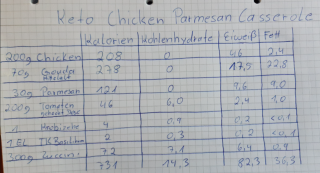 Keto Chicken Parmesan Casserole
Kalorien Kohlenhydrate Eiweiß Fett
200g Chicken 208 0 46 2,4
70g Gouda 278 0 17,5 22,8
30g Parmesan 121 0 9,6 9,0
200g Tomaten 46 6,0 2,4 1,0
1 4 0,9 0,2 <0,1
1 EL TK Basilikum 2 0,3 0,2 <0,1
300g Zucchini 72 7,1 6,4 0,9
731 14,3 82,3 36,3